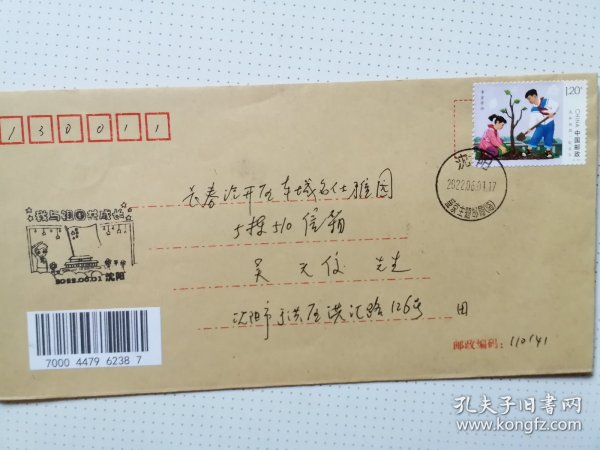 1 3 0 0 1 1
1.20元
CHINA
中国邮政
沈阳
2022.06.01.17
我与祖国共成长
2022.06.01 沈阳
长春汽开区车城名仕雅园
5栋510信箱
吴 先生
沈阳市于洪区洪汇路126号 田
7000 4479 6238 7
邮政编码：110141
孔夫子旧书网
www.kongfz.com